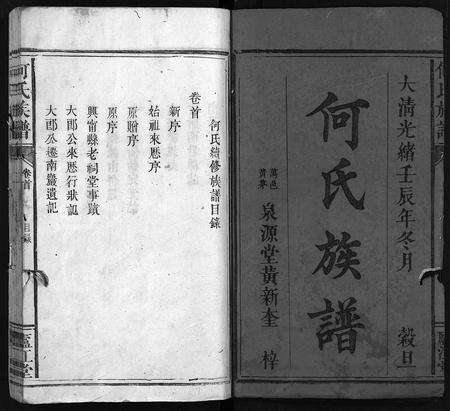 大清光緒壬辰年冬月 穀旦
何氏族譜
萬邑
泉源堂黃新奎 梓
何氏續修族譜目錄
卷首
新序
始祖來歷序
原贈序
原序
興甯縣老祠堂事蹟
大郎公來歷行狀記
大郎公遷南巖遺記
何氏族譜
卷首
目錄
廬江堂